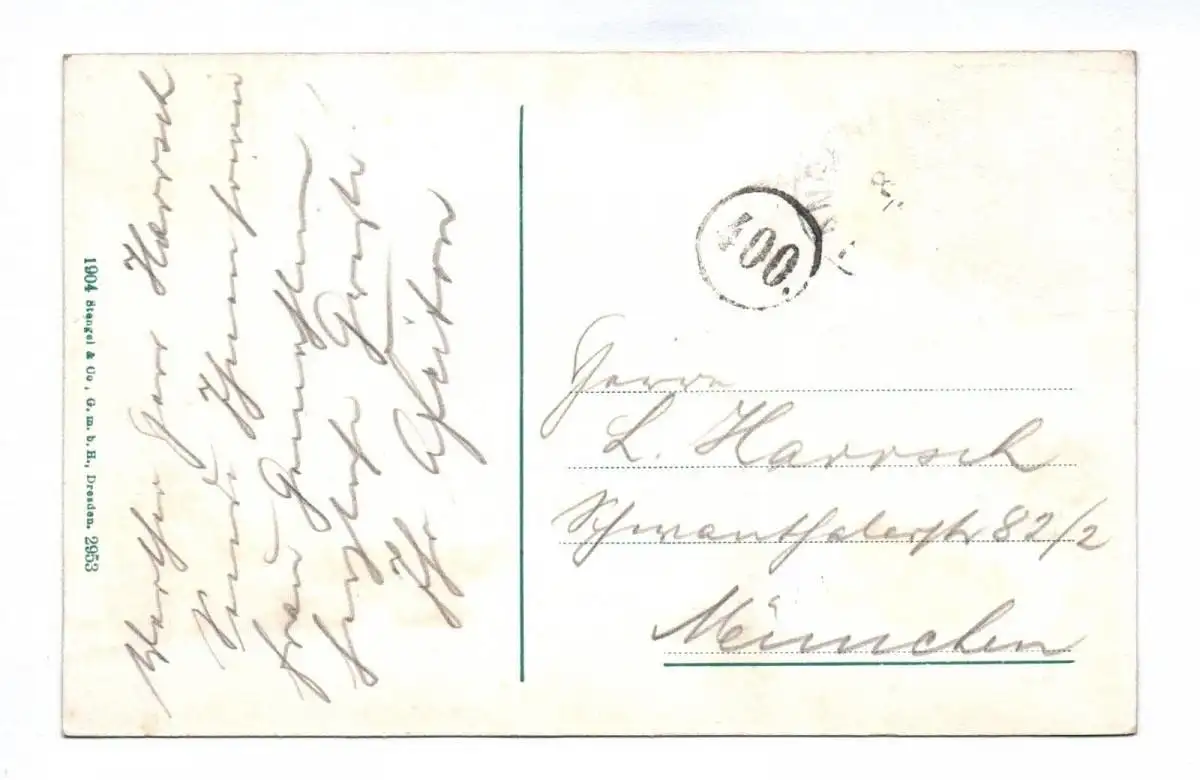 Werther Herr Harrsch
Sende Ihnen
Frau Gemahlin
herzliche Grüße.
Ihr
1904 Stengel & Co., G. m. b. H., Dresden. 2953
400.
Herrn
L. Harrsch
Schwanthalerstr 82/2
München